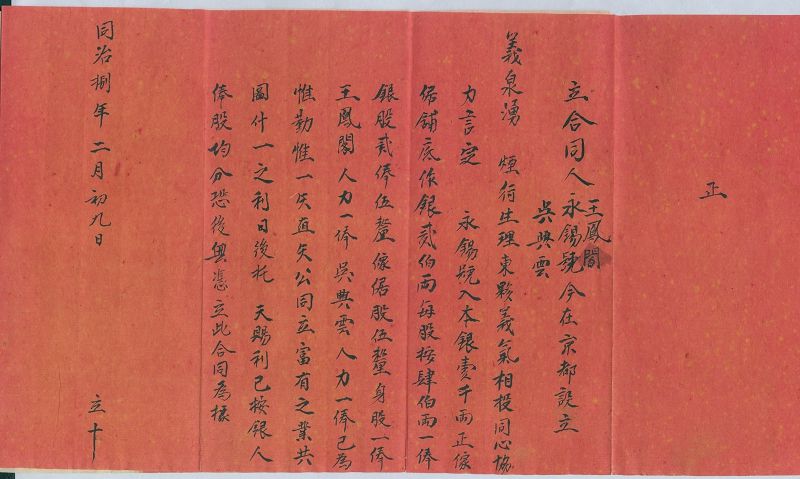 正
立合同人 王鳳閣 永錫號 吳興雲 今在京都設立
義泉湧 煙荷生理東夥義氣相投同心協
力言定 永錫號入本銀壹千両正傢
俻舖底作銀貳伯両每股按肆伯両一俸
銀股貳俸伍釐傢俻股伍釐身股一俸
王鳳閣人力一俸吳興雲人力一俸已為
惟勤惟一矢直矢公同立富有之業共
圖什一之利日後托 天賜利已按銀人
俸股均分恐後無憑立此合同為據
同治捌年二月初九日 立十